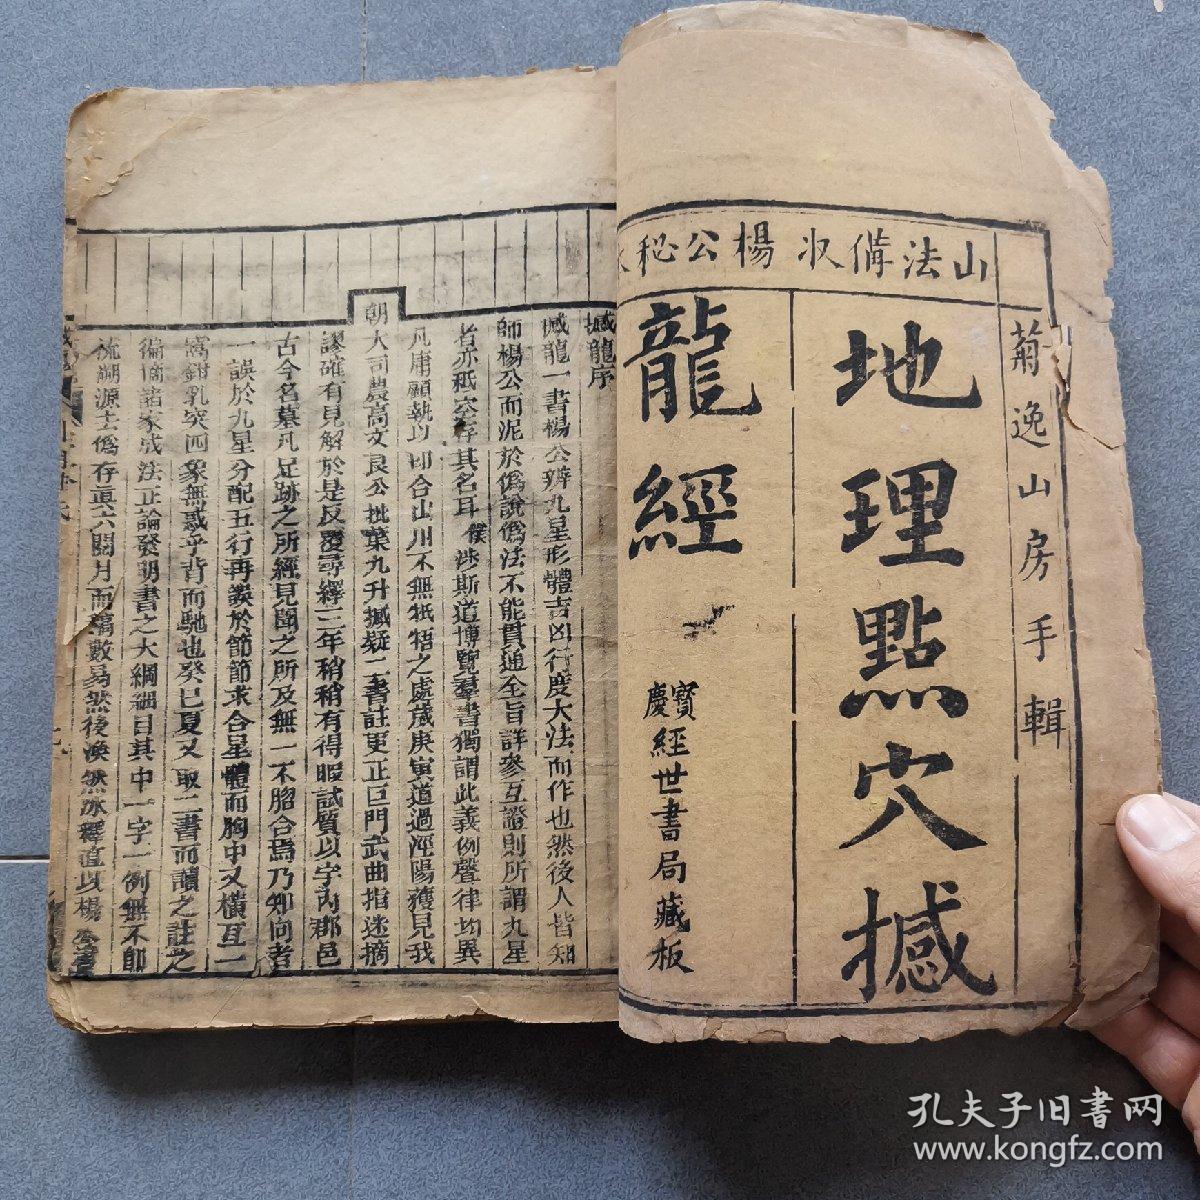 山法備収楊公秘
菊逸山房手輯
地理點穴撼
龍經
寳慶經世書局藏板
撼龍序
撼龍一書楊公辨九星形體吉凶行度大法而作也然後人皆知
師楊公而泥於僞說僞法不能貫通全旨詳參互證則所謂九星
者亦祇空存其名耳僕涉斯道博覽羣書獨謂此義例聲律均異
凡庸顧執以印合山川不無牴牾之處歲庚寅道過涇陽獲見我
朝大司農高文良公批葉九升撼疑二書註更正巨門武曲指迷摘
謬確有見解於是反覆尋繹三年稍稍有得暇試質以宇內郡邑
古今名墓凡足跡之所經見聞之所及無一不脗合焉乃知向者
一誤於九星分配五行再誤於節節求合星體而胸中又橫亙一
窩鉗乳突四象無惑乎背而馳也癸巳夏又取二書而讀之註之
備摘諸家成法正論發明書之大綱細目其中一字一例無不卽
流溯源去僞存眞六閱月而稿數易然後渙然冰釋直以楊公書
孔夫子旧书网
www.kongfz.com